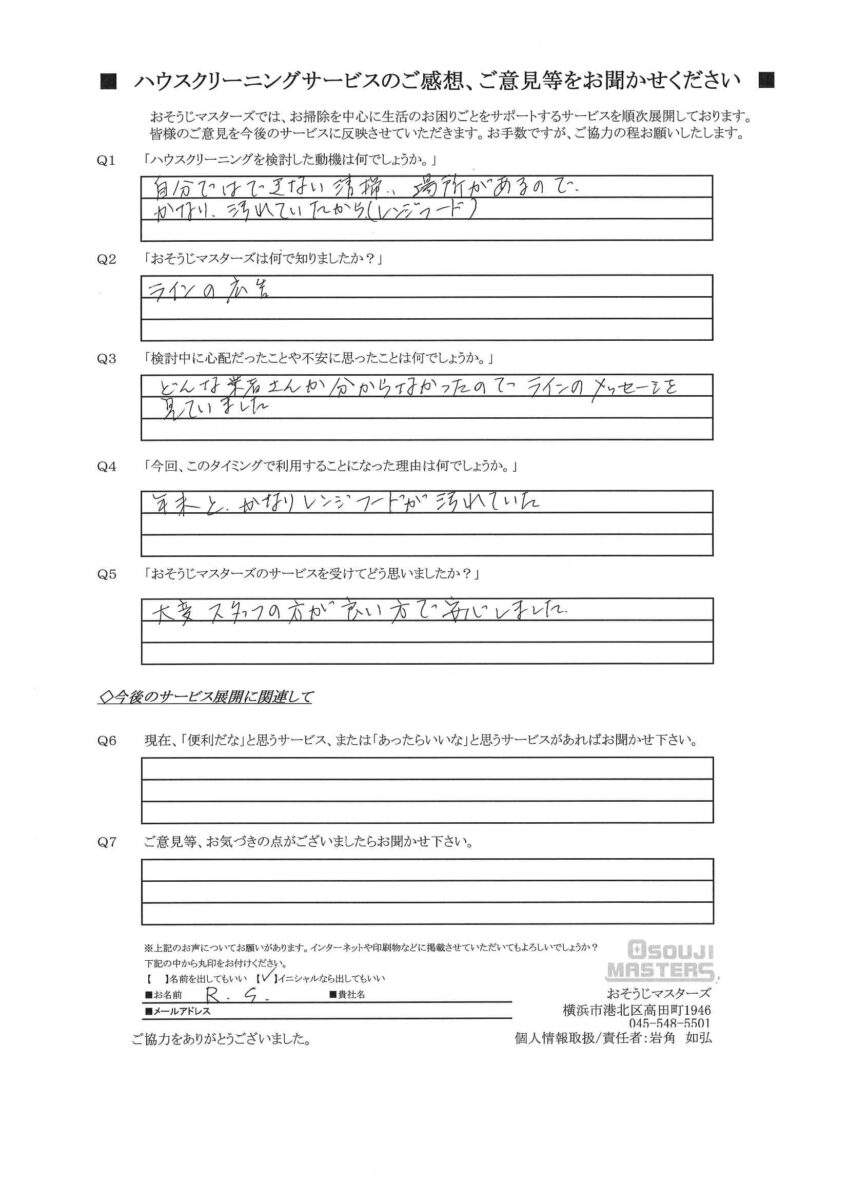 ■ ハウスクリーニングサービスのご感想、ご意見等をお聞かせください ■
おそうじマスターズでは、お掃除を中心に生活のお困りごとをサポートするサービスを順次展開しております。
皆様のご意見を今後のサービスに反映させていただきます。お手数ですが、ご協力の程お願いしたします。
Q1 「ハウスクリーニングを検討した動機は何でしょうか。」
自分ではできない清掃、場所があるので、
かなり、汚れていたから(レンジフード)
Q2 「おそうじマスターズは何で知りましたか？」
ラインの広告
Q3 「検討中に心配だったことや不安に思ったことは何でしょうか。」
どんな業者さんか分からなかったので ラインのメッセージを
見ていました
Q4 「今回、このタイミングで利用することになった理由は何でしょうか。」
年末と、かなりレンジフードが汚れていた
Q5 「おそうじマスターズのサービスを受けてどう思いましたか？」
大変スタッフの方が良い方で安心しました.
◇今後のサービス展開に関連して
Q6 現在、「便利だな」と思うサービス、または「あったらいいな」と思うサービスがあればお聞かせ下さい。
Q7 ご意見等、お気づきの点がございましたらお聞かせ下さい。
※上記のお声についてお願いがあります。インターネットや印刷物などに掲載させていただいてもよろしいでしょうか？
下記の中から丸印をお付けください。
【 】名前を出してもいい 【✓】イニシャルなら出してもいい
■お名前 R. S. ■貴社名
■メールアドレス
ご協力をありがとうございました。
OSOUJI
MASTERS
おそうじマスターズ
横浜市港北区高田町1946
045-548-5501
個人情報取扱/責任者：岩角 如弘